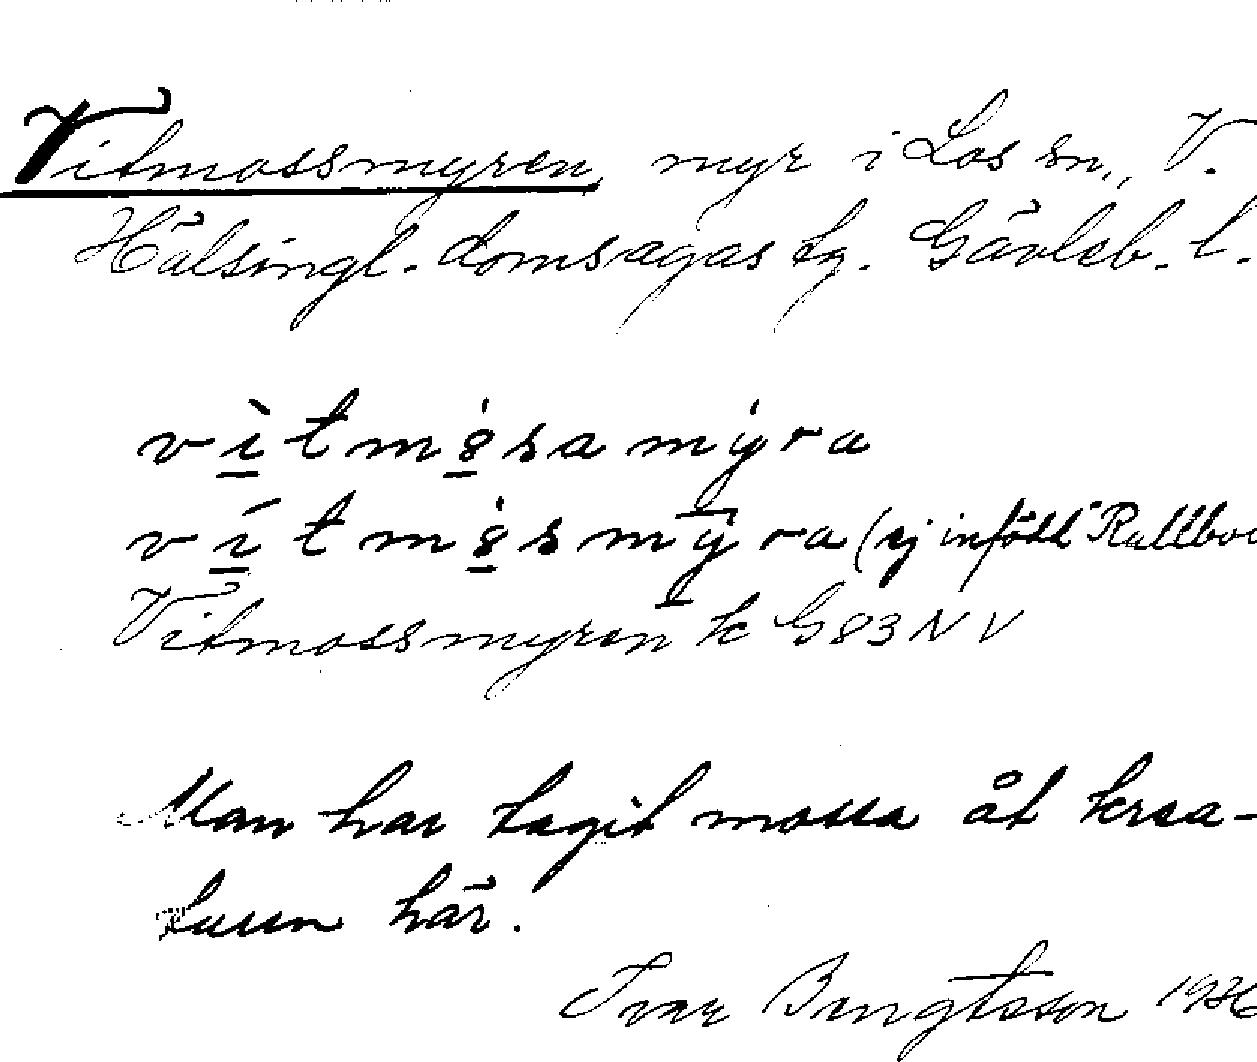 Vitmossmyren, myr i Los sn., V.
Hälsingl. domsagas tg. Gävleb. l.
vìtmåsa mýra
vítmås mȳra (ej infödd Rullbo
Vitmossmyren k G83NV
Man har tagit mossa åt krea-
turen här.
Ivar Bengtsson 1936